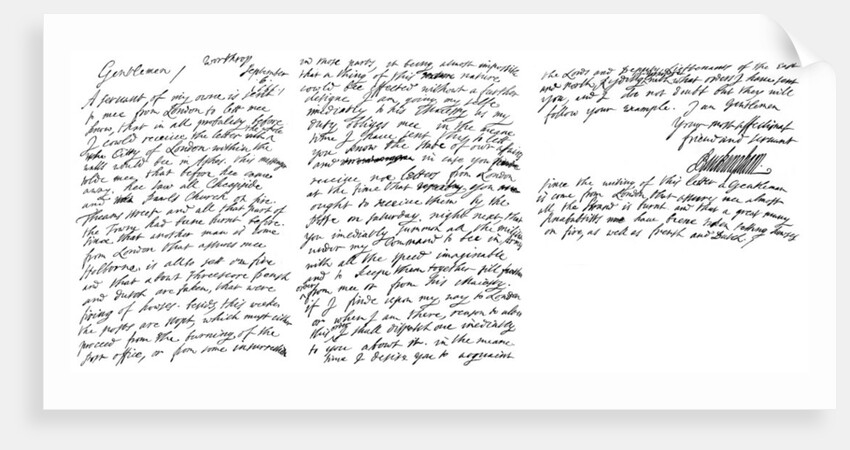 Gentlemen / Worthrop
September 6
A servant of my owne is sent
to mee from London to let mee
know, that in all probality before
I could receive the letter all the
Citty of London within the
walls would be in Ashes. this
tolde mee, that before hee came
away hee saw all Cheapside
and Pauls Church at fire.
Theams street and all that part of
the Towne had been burnt before.
Since that another man is come
from London that assures mee
Holborne is allso set on fire
and that about threescore french
and dutch are taken, that were
firing of houses. besides this
the posts are stopt, which must either
proceed from the burning of the
post office, or from some insurrection
in those parts, it being almost impossible
that a thing of this nature
could bee effected without a further
designe. I am going my selfe
imediatly to his Majesty as my
duty obliges mee in the meane
time I have sent this to lett
you know the state of our affairs
and in case you
receive no letters from London
at the time that you
ought to receive them by the
post on Saturday night next, that
you imediatly summon all the militia
under my Command to bee in Arms
with all the speed imaginable
and to keepe them together till further
orders from mee or from his Majesty.
if I finde upon my way to London
or when I am there, reason to alter
this order I shall dispatch one imediatly
to you about it. in the meane
time I desire you to acquaint
the Lords and Deputy Lieftenants of the
and north Ryding with what orders I have sent
you, and I do not doubt but they will
follow your example. I am Gentlemen
Your most affectionat
friend and servant
Buckingham
Since the writing of this letter a Gentleman
is come from London that assures me almost
all the Strand is burnt and that a great many
Anabaptists have beene taken setting houses
on fire, as well as french and Dutch.